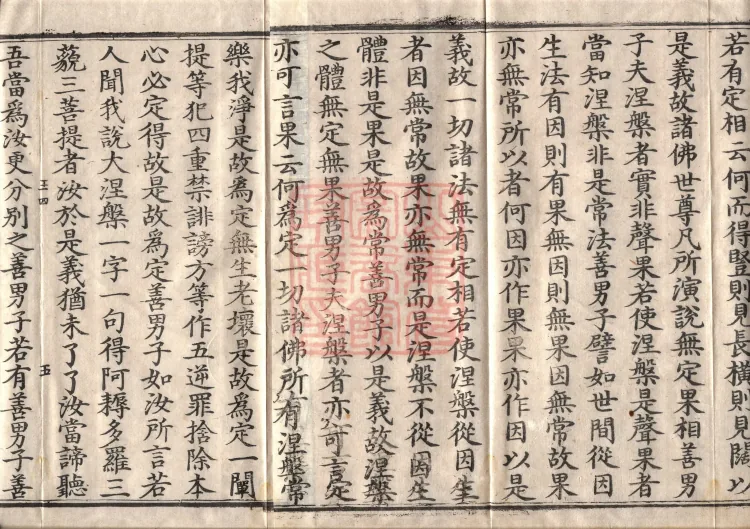 若有定相云何而得豎則見長橫則見闊以
是義故諸佛世尊凡所演說無定果相善男
子夫涅槃者實非聲果若使涅槃是聲果者
當知涅槃非是常法善男子譬如世間從因
生法有因則有果無因則無果因無常故果
亦無常所以者何因亦作果果亦作因以是
義故一切諸法無有定相若使涅槃從因生
者因無常故果亦無常而是涅槃不從因生
體非是果是故為常善男子以是義故涅槃
之體無定無果善男子夫涅槃者亦可言定
亦可言果云何為定一切諸佛所有涅槃常
樂我淨是故為定無生老壞是故為定一闡
提等犯四重禁誹謗方等作五逆罪捨除本
心必定得故是故為定善男子如汝所言若
人聞我說大涅槃一字一句得阿耨多羅三
藐三菩提者汝於是義猶未了了汝當諦聽
王四 五
吾當為汝更分別之善男子若有善男子善